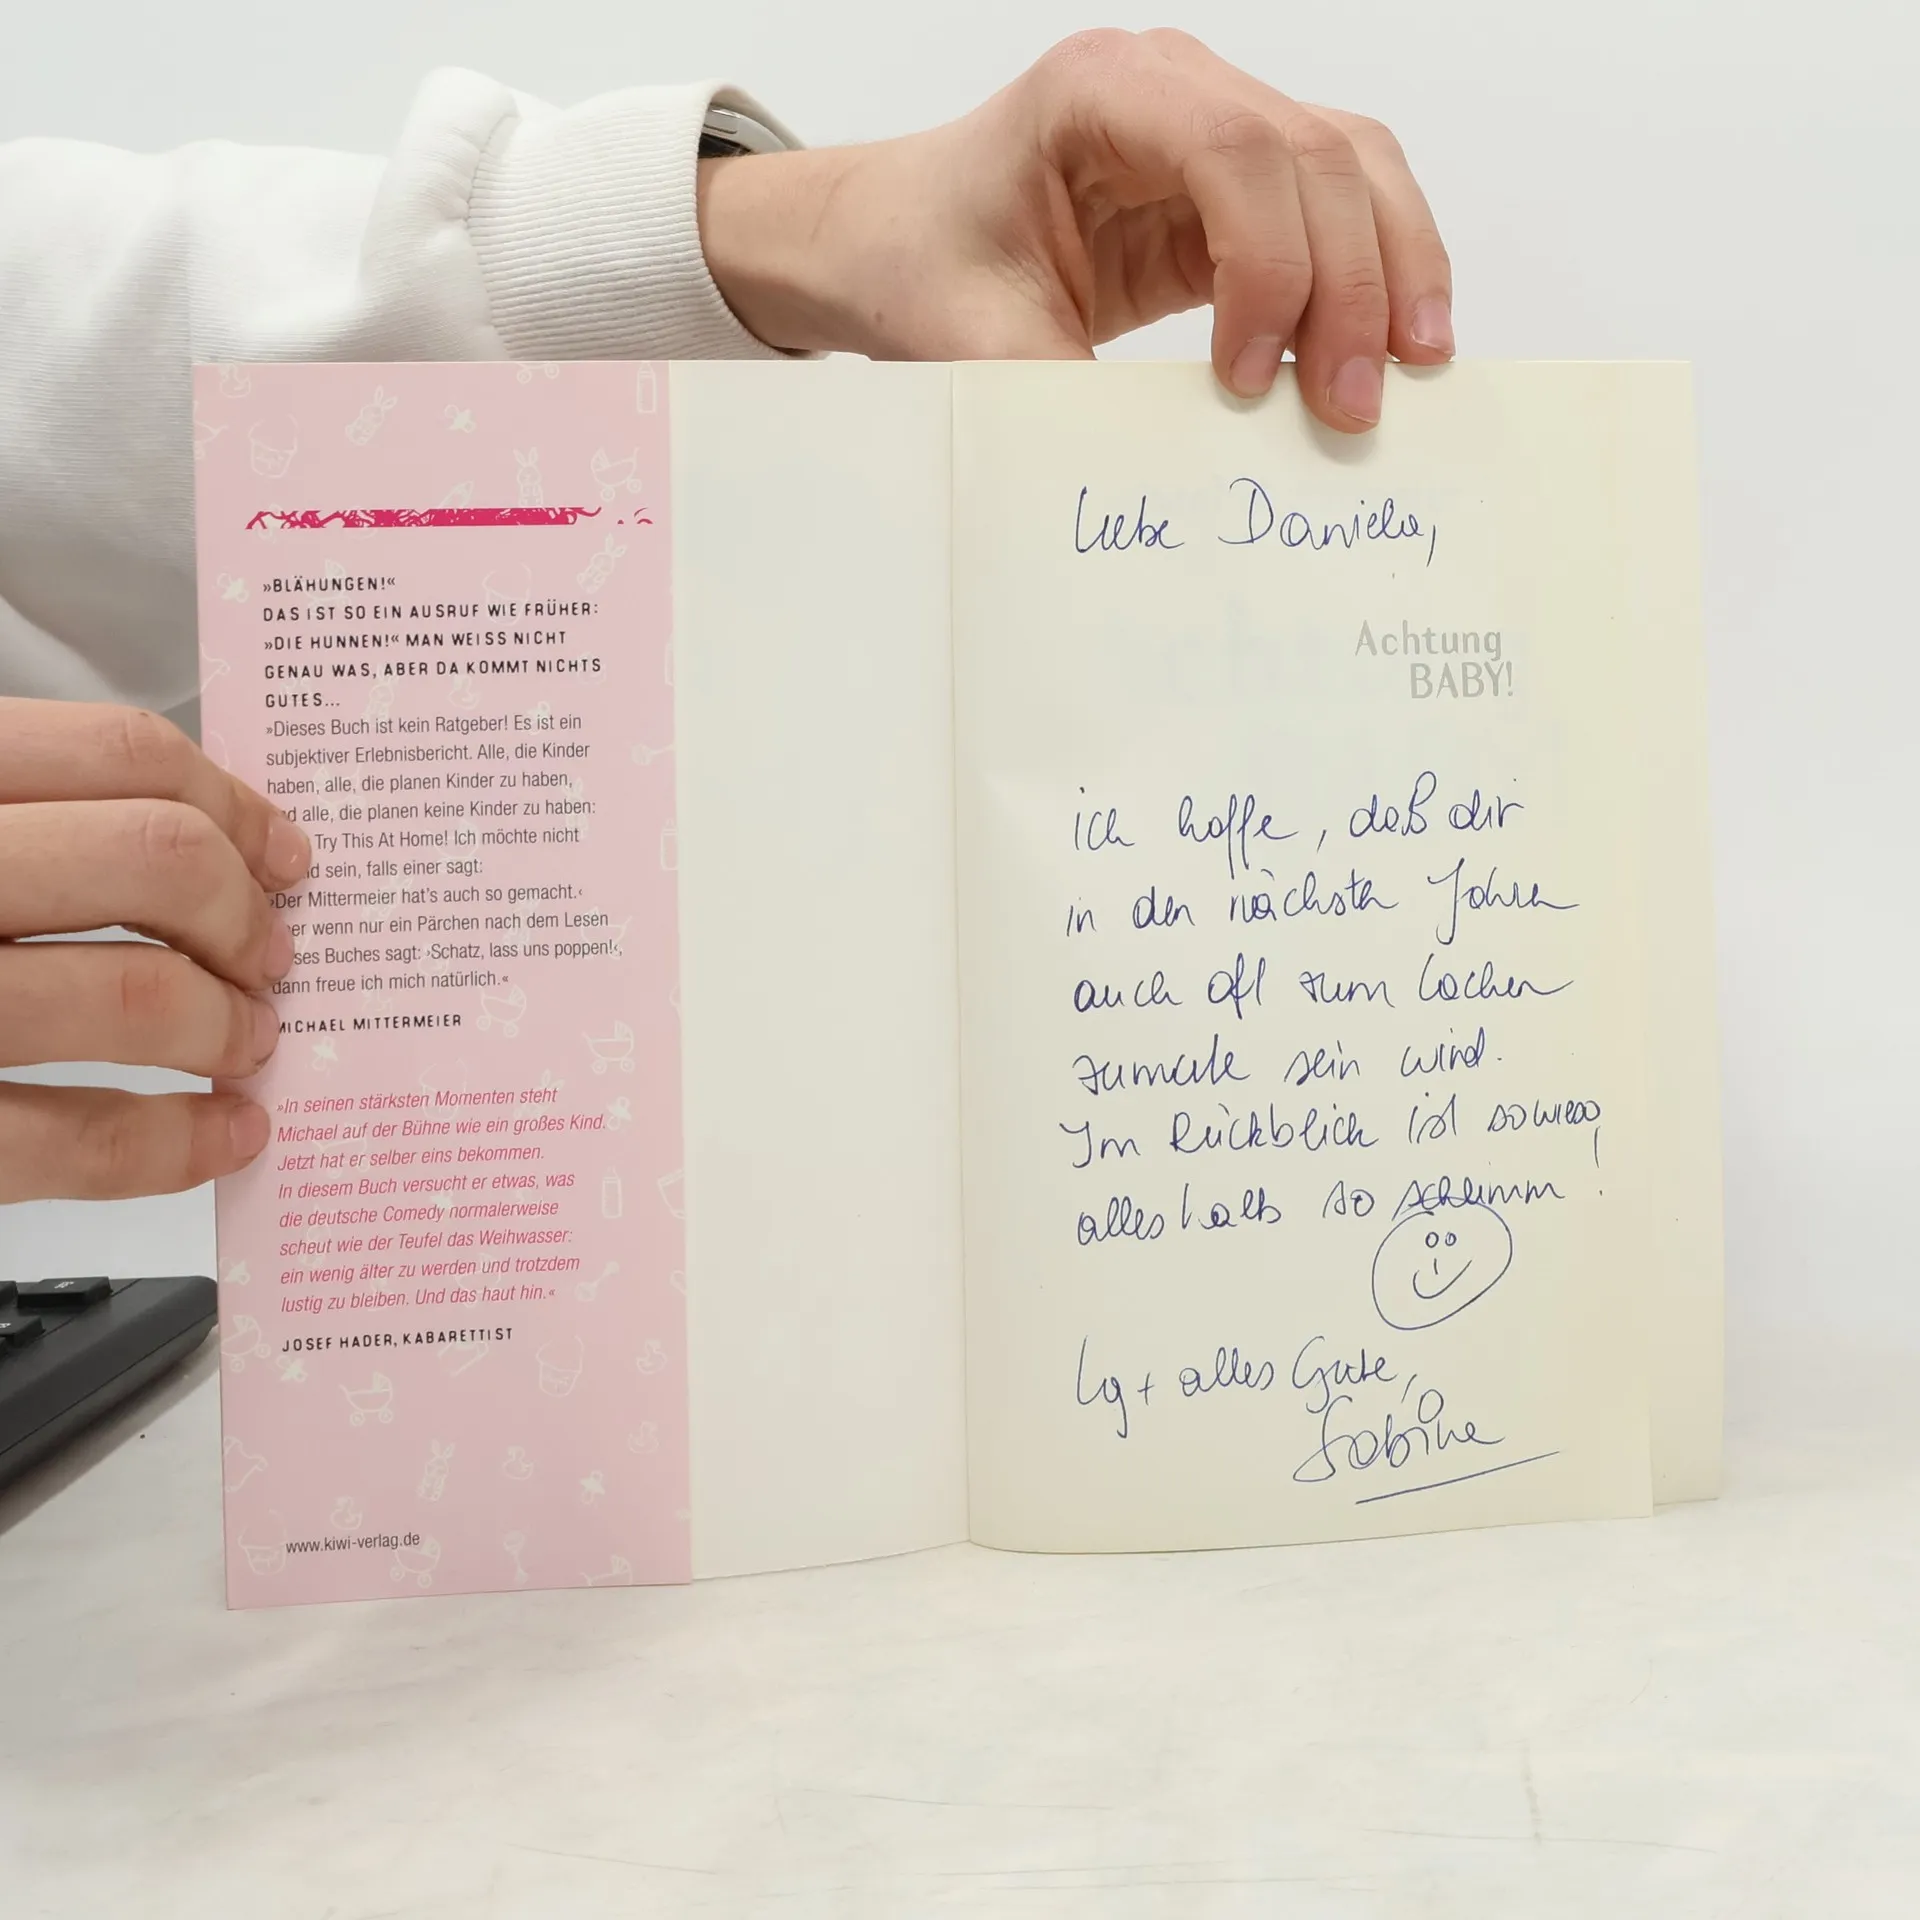 »BLÄHUNGEN!«
DAS IST SO EIN AUSRUF WIE FRÜHER:
»DIE HUNNEN!« MAN WEISS NICHT
GENAU WAS, ABER DA KOMMT NICHTS
GUTES...
»Dieses Buch ist kein Ratgeber! Es ist ein
subjektiver Erlebnisbericht. Alle, die Kinder
haben, alle, die planen Kinder zu haben,
alle, die planen keine Kinder zu haben:
Try This At Home! Ich möchte nicht
sein, falls einer sagt:
›Der Mittermeier hat's auch so gemacht.‹
wenn nur ein Pärchen nach dem Lesen
Buches sagt: ›Schatz, lass uns poppen!‹,
dann freue ich mich natürlich.«
MICHAEL MITTERMEIER
»In seinen stärksten Momenten steht
Michael auf der Bühne wie ein großes Kind.
Jetzt hat er selber eins bekommen.
In diesem Buch versucht er etwas, was
die deutsche Comedy normalerweise
scheut wie der Teufel das Weihwasser:
ein wenig älter zu werden und trotzdem
lustig zu bleiben. Und das haut hin.«
JOSEF HADER, KABARETTIST
www.kiwi-verlag.de
Liebe Daniela,
Achtung
BABY!
ich hoffe, daß dir
in den nächsten Jahren
auch oft zum Lachen
zumute sein wird.
Im Rückblick ist sowieso
alles halb so schlimm!
Lg + alles Gute,
Sabine